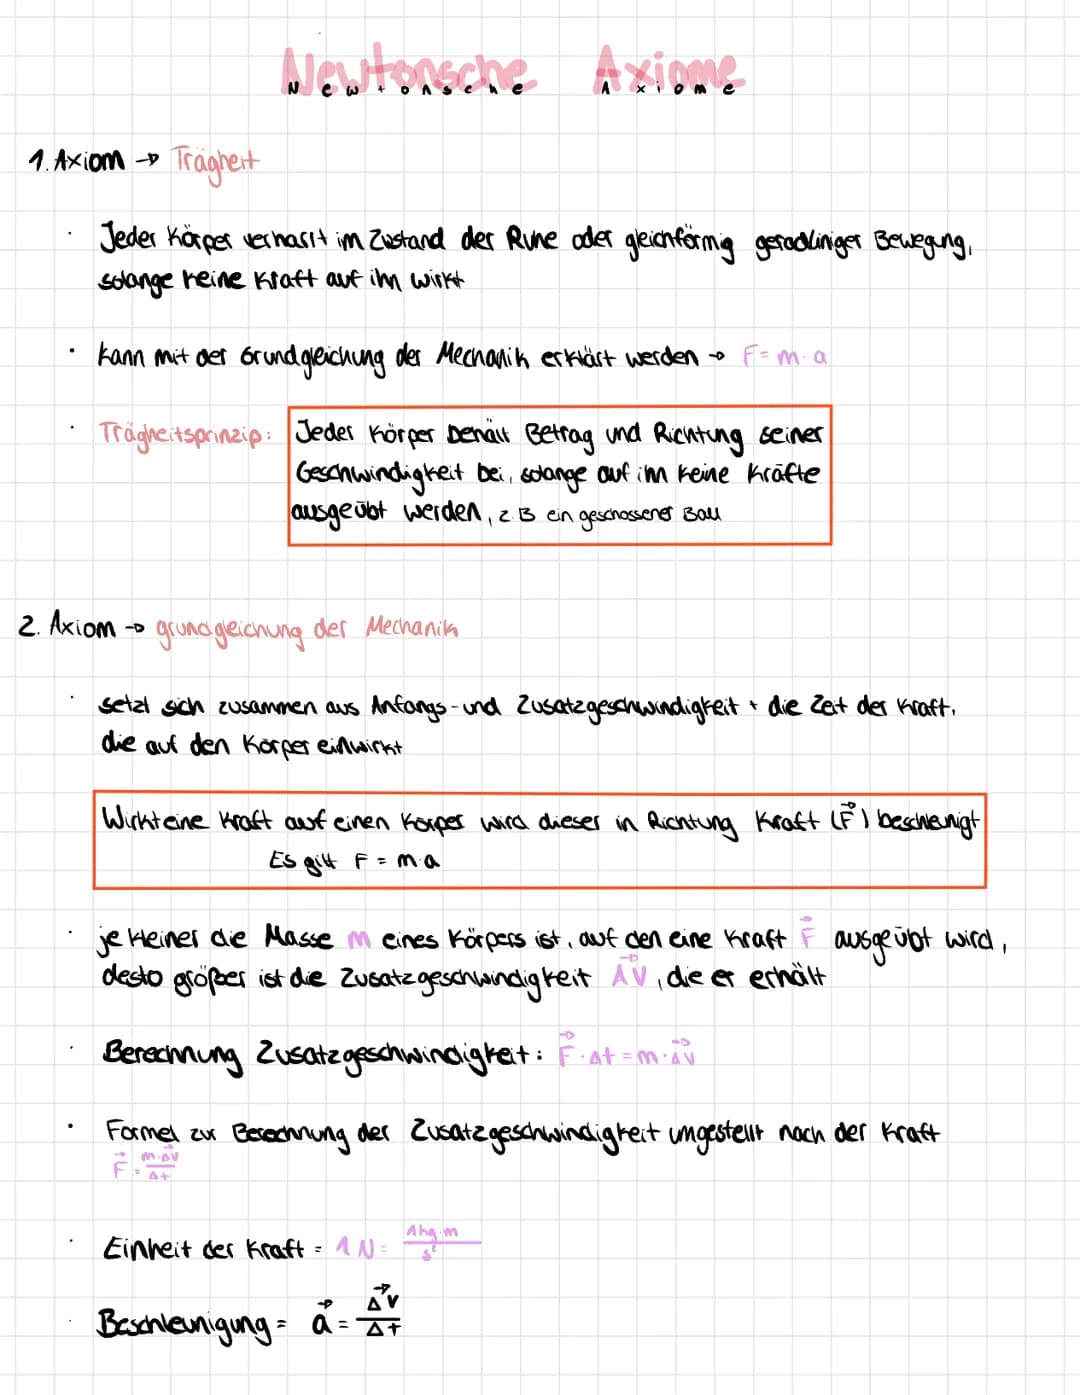 Newtonsche Axiome
1. Axiom → Trägheit
· Jeder Körper verharrt im Zustand der Ruhe oder gleichförmig geradliniger Bewegung,
solange keine Kraft auf ihn wirkt
· kann mit der Grundgleichung der Mechanik erklärt werden → F = m · a
· Trägheitsprinzip: Jeder Körper behält Betrag und Richtung seiner
Geschwindigkeit bei, solange auf im keine Kräfte
ausgeübt werden, z.B ein geschossener Ball
2. Axiom → grundgleichung der Mechanik
· setzt sich zusammen aus Anfangs- und Zusatzgeschwindigkeit + die Zeit der Kraft,
die auf den Körper einwirkt
Wirkt eine Kraft auf einen Körper wird dieser in Richtung Kraft (F⃗) beschleunigt
Es gilt F = m·a
· je kleiner die Masse m eines Körpers ist, auf den eine Kraft F⃗ ausgeübt wird,
desto größer ist die Zusatzgeschwindigkeit Δv⃗, die er erhält
· Berechnung Zusatzgeschwindigkeit: F⃗ · Δt = m · Δv⃗
· Formel zur Berechnung der Zusatzgeschwindigkeit umgestellt nach der Kraft
F⃗ = m·Δv⃗ / Δt
· Einheit der Kraft = 1 N = 1kg·m / s²
· Beschleunigung = a⃗ = Δv⃗ / Δt